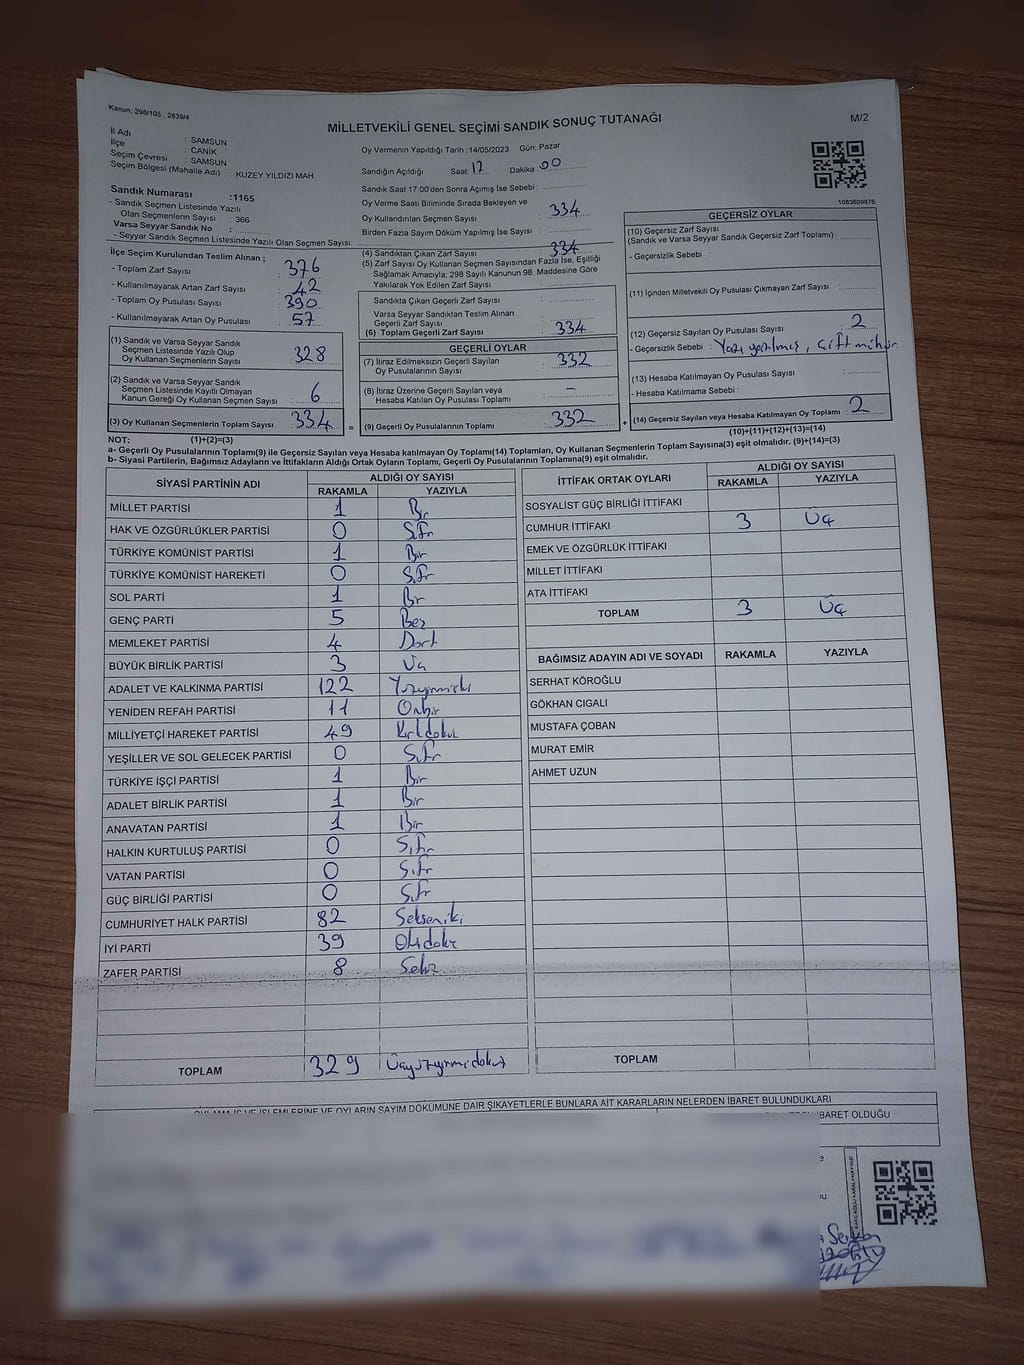 Kanun; 298/105 , 2839/4
MİLLETVEKİLİ GENEL SEÇİMİ SANDIK SONUÇ TUTANAĞI
M/2
İl Adı : SAMSUN
İlçe : CANİK
Seçim Çevresi : SAMSUN
Seçim Bölgesi (Mahalle Adı) : KUZEY YILDIZI MAH.
Sandık Numarası :1165
- Sandık Seçmen Listesinde Yazılı
Olan Seçmenlerin Sayısı : 366
Varsa Seyyar Sandık No :
- Seyyar Sandık Seçmen Listesinde Yazılı Olan Seçmen Sayısı:
Oy Vermenin Yapıldığı Tarih : 14/05/2023 Gün: Pazar
Sandığın Açıldığı Saat 17 Dakika 00
Sandık Saat 17:00'den Sonra Açımış İse Sebebi :
Oy Verme Saati Bitiminde Sırada Bekleyen ve
Oy Kullandırılan Seçmen Sayısı : 334
Birden Fazla Sayım Döküm Yapılmış İse Sayısı :
1083609876
İlçe Seçim Kurulundan Teslim Alınan ;
- Toplam Zarf Sayısı : 376
- Kullanılmayarak Artan Zarf Sayısı : 42
- Toplam Oy Pusulası Sayısı : 390
- Kullanılmayarak Artan Oy Pusulası : 57
(1) Sandık ve Varsa Seyyar Sandık
Seçmen Listesinde Yazılı Olup
Oy Kullanan Seçmenlerin Sayısı : 328
(2) Sandık ve Varsa Seyyar Sandık
Seçmen Listesinde Kayıtlı Olmayan
Kanun Gereği Oy Kullanan Seçmen Sayısı : 6
(3) Oy Kullanan Seçmenlerin Toplam Sayısı : 334 =
(4) Sandıktan Çıkan Zarf Sayısı : 334
(5) Zarf Sayısı Oy Kullanan Seçmen Sayısından Fazla İse, Eşitliği
Sağlamak Amacıyla; 298 Sayılı Kanunun 98. Maddesine Göre
Yakılarak Yok Edilen Zarf Sayısı :
Sandıkta Çıkan Geçerli Zarf Sayısı :
Varsa Seyyar Sandıktan Teslim Alınan
Geçerli Zarf Sayısı :
(6) Toplam Geçerli Zarf Sayısı : 334
GEÇERLİ OYLAR
(7) İtiraz Edilmeksizin Geçerli Sayılan
Oy Pusulalarının Sayısı : 332
(8) İtiraz Üzerine Geçerli Sayılan veya
Hesaba Katılan Oy Pusulası Toplamı : –
(9) Geçerli Oy Pusulalarının Toplamı : 332 +
GEÇERSİZ OYLAR
(10) Geçersiz Zarf Sayısı
(Sandık ve Varsa Seyyar Sandık Geçersiz Zarf Toplamı) :
- Geçersizlik Sebebi :
(11) İçinden Milletvekili Oy Pusulası Çıkmayan Zarf Sayısı :
(12) Geçersiz Sayılan Oy Pusulası Sayısı : 2
- Geçersizlik Sebebi : Yazı yazılmış, Çift mühür
(13) Hesaba Katılmayan Oy Pusulası Sayısı :
- Hesaba Katılmama Sebebi :
(14) Geçersiz Sayılan veya Hesaba Katılmayan Oy Toplamı : 2
(10)+(11)+(12)+(13)=(14)
NOT: (1)+(2)=(3)
a- Geçerli Oy Pusulalarının Toplamı(9) ile Geçersiz Sayılan veya Hesaba katılmayan Oy Toplamı(14) Toplamları, Oy Kullanan Seçmenlerin Toplam Sayısına(3) eşit olmalıdır. (9)+(14)=(3)
b- Siyasi Partilerin, Bağımsız Adayların ve İttifakların Aldığı Ortak Oyların Toplamı, Geçerli Oy Pusulalarının Toplamına(9) eşit olmalıdır.
SİYASİ PARTİNİN ADI ALDIĞI OY SAYISI
RAKAMLA YAZIYLA
MİLLET PARTİSİ 1 Bir
HAK VE ÖZGÜRLÜKLER PARTİSİ 0 Sıfır
TÜRKİYE KOMÜNİST PARTİSİ 1 Bir
TÜRKİYE KOMÜNİST HAREKETİ 0 Sıfır
SOL PARTİ 1 Bir
GENÇ PARTİ 5 Beş
MEMLEKET PARTİSİ 4 Dört
BÜYÜK BİRLİK PARTİSİ 3 Üç
ADALET VE KALKINMA PARTİSİ 122 Yüzyirmiiki
YENİDEN REFAH PARTİSİ 11 Onbir
MİLLİYETÇİ HAREKET PARTİSİ 49 Kırkdokuz
YEŞİLLER VE SOL GELECEK PARTİSİ 0 Sıfır
TÜRKİYE İŞÇİ PARTİSİ 1 Bir
ADALET BİRLİK PARTİSİ 1 Bir
ANAVATAN PARTİSİ 1 Bir
HALKIN KURTULUŞ PARTİSİ 0 Sıfır
VATAN PARTİSİ 0 Sıfır
GÜÇ BİRLİĞİ PARTİSİ 0 Sıfır
CUMHURİYET HALK PARTİSİ 82 Sekseniki
İYİ PARTİ 39 Otuzdokuz
ZAFER PARTİSİ 8 Sekiz
TOPLAM 329 Üçyüzyirmidokuz
İTTİFAK ORTAK OYLARI ALDIĞI OY SAYISI
RAKAMLA YAZIYLA
SOSYALİST GÜÇ BİRLİĞİ İTTİFAKI
CUMHUR İTTİFAKI 3 Üç
EMEK VE ÖZGÜRLÜK İTTİFAKI
MİLLET İTTİFAKI
ATA İTTİFAKI
TOPLAM 3 Üç
BAĞIMSIZ ADAYIN ADI VE SOYADI RAKAMLA YAZIYLA
SERHAT KÖROĞLU
GÖKHAN CIGALI
MUSTAFA ÇOBAN
MURAT EMİR
AHMET UZUN
TOPLAM
OYLAMA İŞ VE İŞLEMLERİNE VE OYLARIN SAYIM DÖKÜMÜNE DAİR ŞİKAYETLERLE BUNLARA AİT KARARLARIN NELERDEN İBARET BULUNDUKLARI
İBARET OLDUĞU